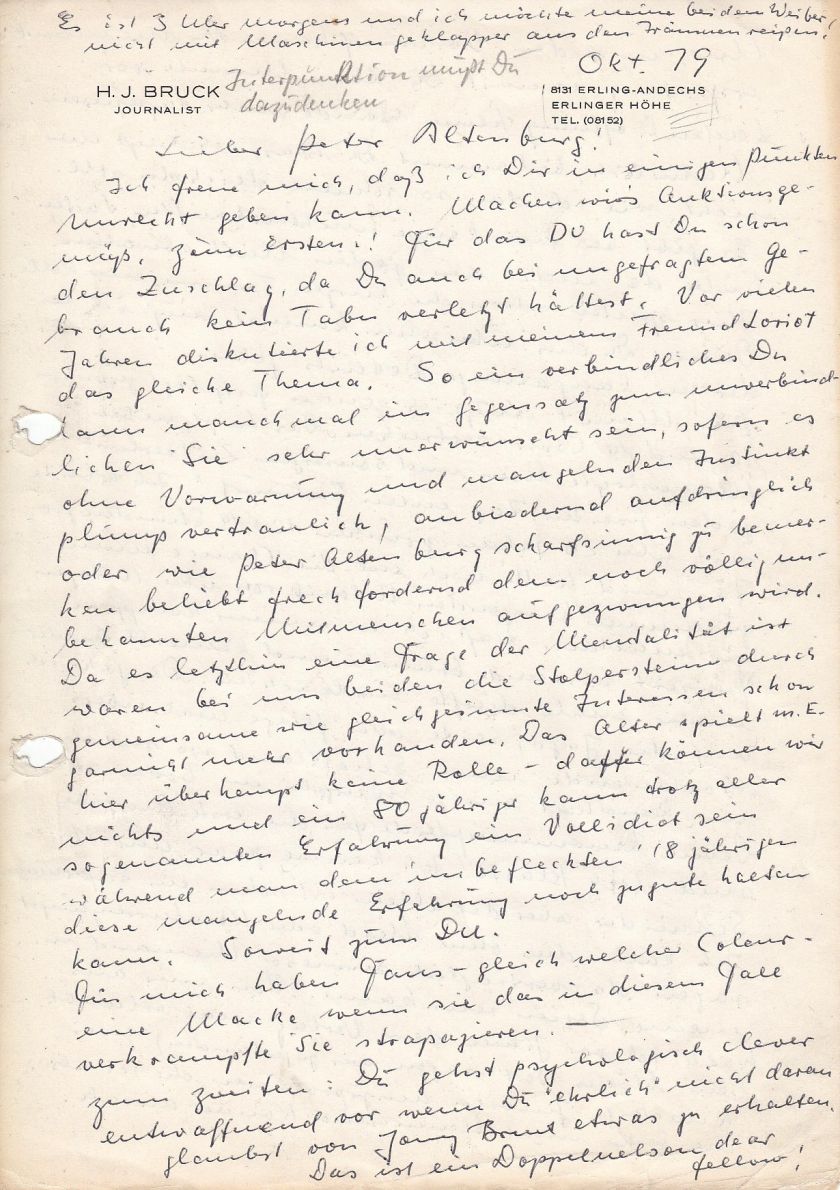 Es ist 3 Uhr morgens und ich möchte meine beiden Weiber
nicht mit Maschinengeklapper aus den Träumen reißen!
Okt. 79
Interpunktion mußt Du
dazudenken
H. J. BRUCK
JOURNALIST
8131 ERLING-ANDECHS
ERLINGER HÖHE
TEL. (08152)
Lieber Peter Altenburg!
Ich freue mich, daß ich Dir in einigen Punkten
unrecht geben kann. Machen wir's Auktionsge-
mäß, zum Ersten..! Für das DU hast Du schon
den Zuschlag, da Du auch bei ungefragtem Ge-
brauch kein Tabu verletzt hättest. Vor vielen
Jahren diskutierte ich mit meinem Freund Loriot
das gleiche Thema. So ein verbindliches Du
kann manchmal im Gegensatz zum unverbind-
lichen "Sie" sehr unerwünscht sein, sofern es
ohne Vorwarnung und mangelnden Instinkt
plump vertraulich, anbiedernd aufdringlich
oder wie Peter Altenburg scharfsinnig zu bemer-
ken beliebt frech fordernd dem noch völlig un-
bekannten Mitmenschen aufgezwungen wird.
Da es letztlich eine Frage der Mentalität ist
waren bei uns beiden die Stolpersteine durch
gemeinsame wie gleichgesinnte Interessen schon
garnicht mehr vorhanden. Das Alter spielt m. E.
hier überhaupt keine Rolle - dafür können wir
nichts und ein 80 jähriger kann trotz aller
sogenannten Erfahrung ein Vollidiot sein
während man dem 'unbefleckten' 18 jährigen
diese mangelnde Erfahrung noch zugute halten
kann. Soweit zum DU.
Für mich haben Fans - gleich welcher Coleur -
eine Macke wenn sie das in diesem Fall
verkrampfte Sie strapazieren. —
zum zweiten: Du gehst psychologisch clever
entwaffnend vor wenn Du "ehrlich" nicht daran
glaubst von Jonny Bruck etwas zu erhalten.
Das ist ein Doppelnelson dear
fellow!